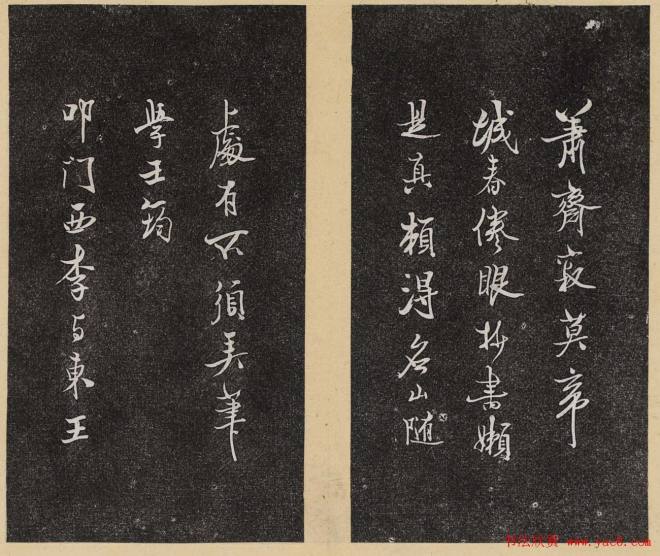 萧齋寂莫帝
城春倦眼抄書嬾
是真賴得名山随
處有不須美筆
學王筠
叩门西李与東王
书法欣赏 www.yac8.com